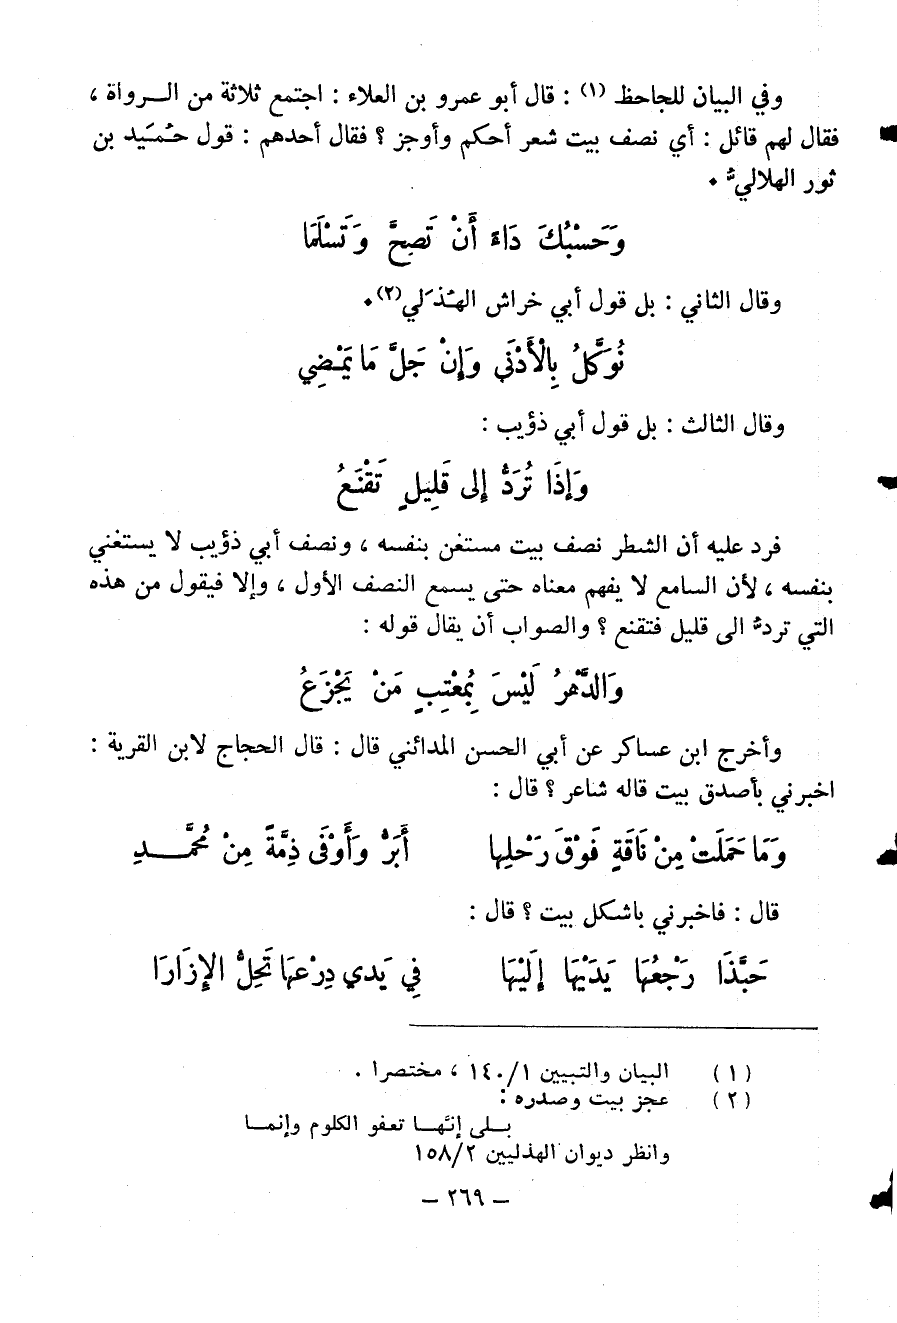 وفي البيان للجاحظ (١) : قال أبو عمرو بن العلاء : اجتمع ثلاثة من الـرواة ،
فقال لهم قائل : أي نصف بيت شعر أحكم وأوجز ؟ فقال أحدهم : قول حُمَيد بن
ثور الهلاليّ .
وَحَسْبُكَ دَاءَ أَنْ تَصِحَّ وَتَسْلَمَا
وقال الثاني : بل قول أبي خراش الهُذَلي (٢) .
نُوَكَّلُ بِالْأَدْنَى وَإِنْ جَلَّ مَا يَمْضِي
وقال الثالث : بل قول أبي ذؤيب :
وَإِذَا تُرَدُّ إِلى قَلِيلٍ تَقْنَعُ
فرد عليه أن الشطر نصف بيت مستغن بنفسه ، ونصف أبي ذؤيب لا يستغني
بنفسه ، لأن السامع لا يفهم معناه حتى يسمع النصف الأول ، وإلا فيقول من هذه
التي تردّ الى قليل فتقنع ؟ والصواب أن يقال قوله :
وَالدَّهْرُ لَيْسَ بِمُعْتِبٍ مَنْ يَجْزَعُ
وأخرج ابن عساكر عن أبي الحسن المدائني قال : قال الحجاج لابن القرية :
اخبرني بأصدق بيت قاله شاعر ؟ قال :
وَمَا حَمَلَتْ مِنْ نَاقَةٍ فَوْقَ رَحْلِها أَبَرُّ وَأَوْفَى ذِمَّةً مِنْ مُحَمَّـدِ
قال : فاخبرني باشكل بيت ؟ قال :
حَبَّذَا رَجْعُهَا يَدَيْهَا إِلَيْهَا فِي يَدي دِرْعِهَا تَحِلُّ الإِزَارَا
(١) البيان والتبيين ١٤٠/١ ، مختصرا .
(٢) عجز بيت وصدره :
بـلى إنّهـا تعفو الكلوم وإنمـا
وانظر ديوان الهذليين ١٥٨/٢
– ٢٦٩ –